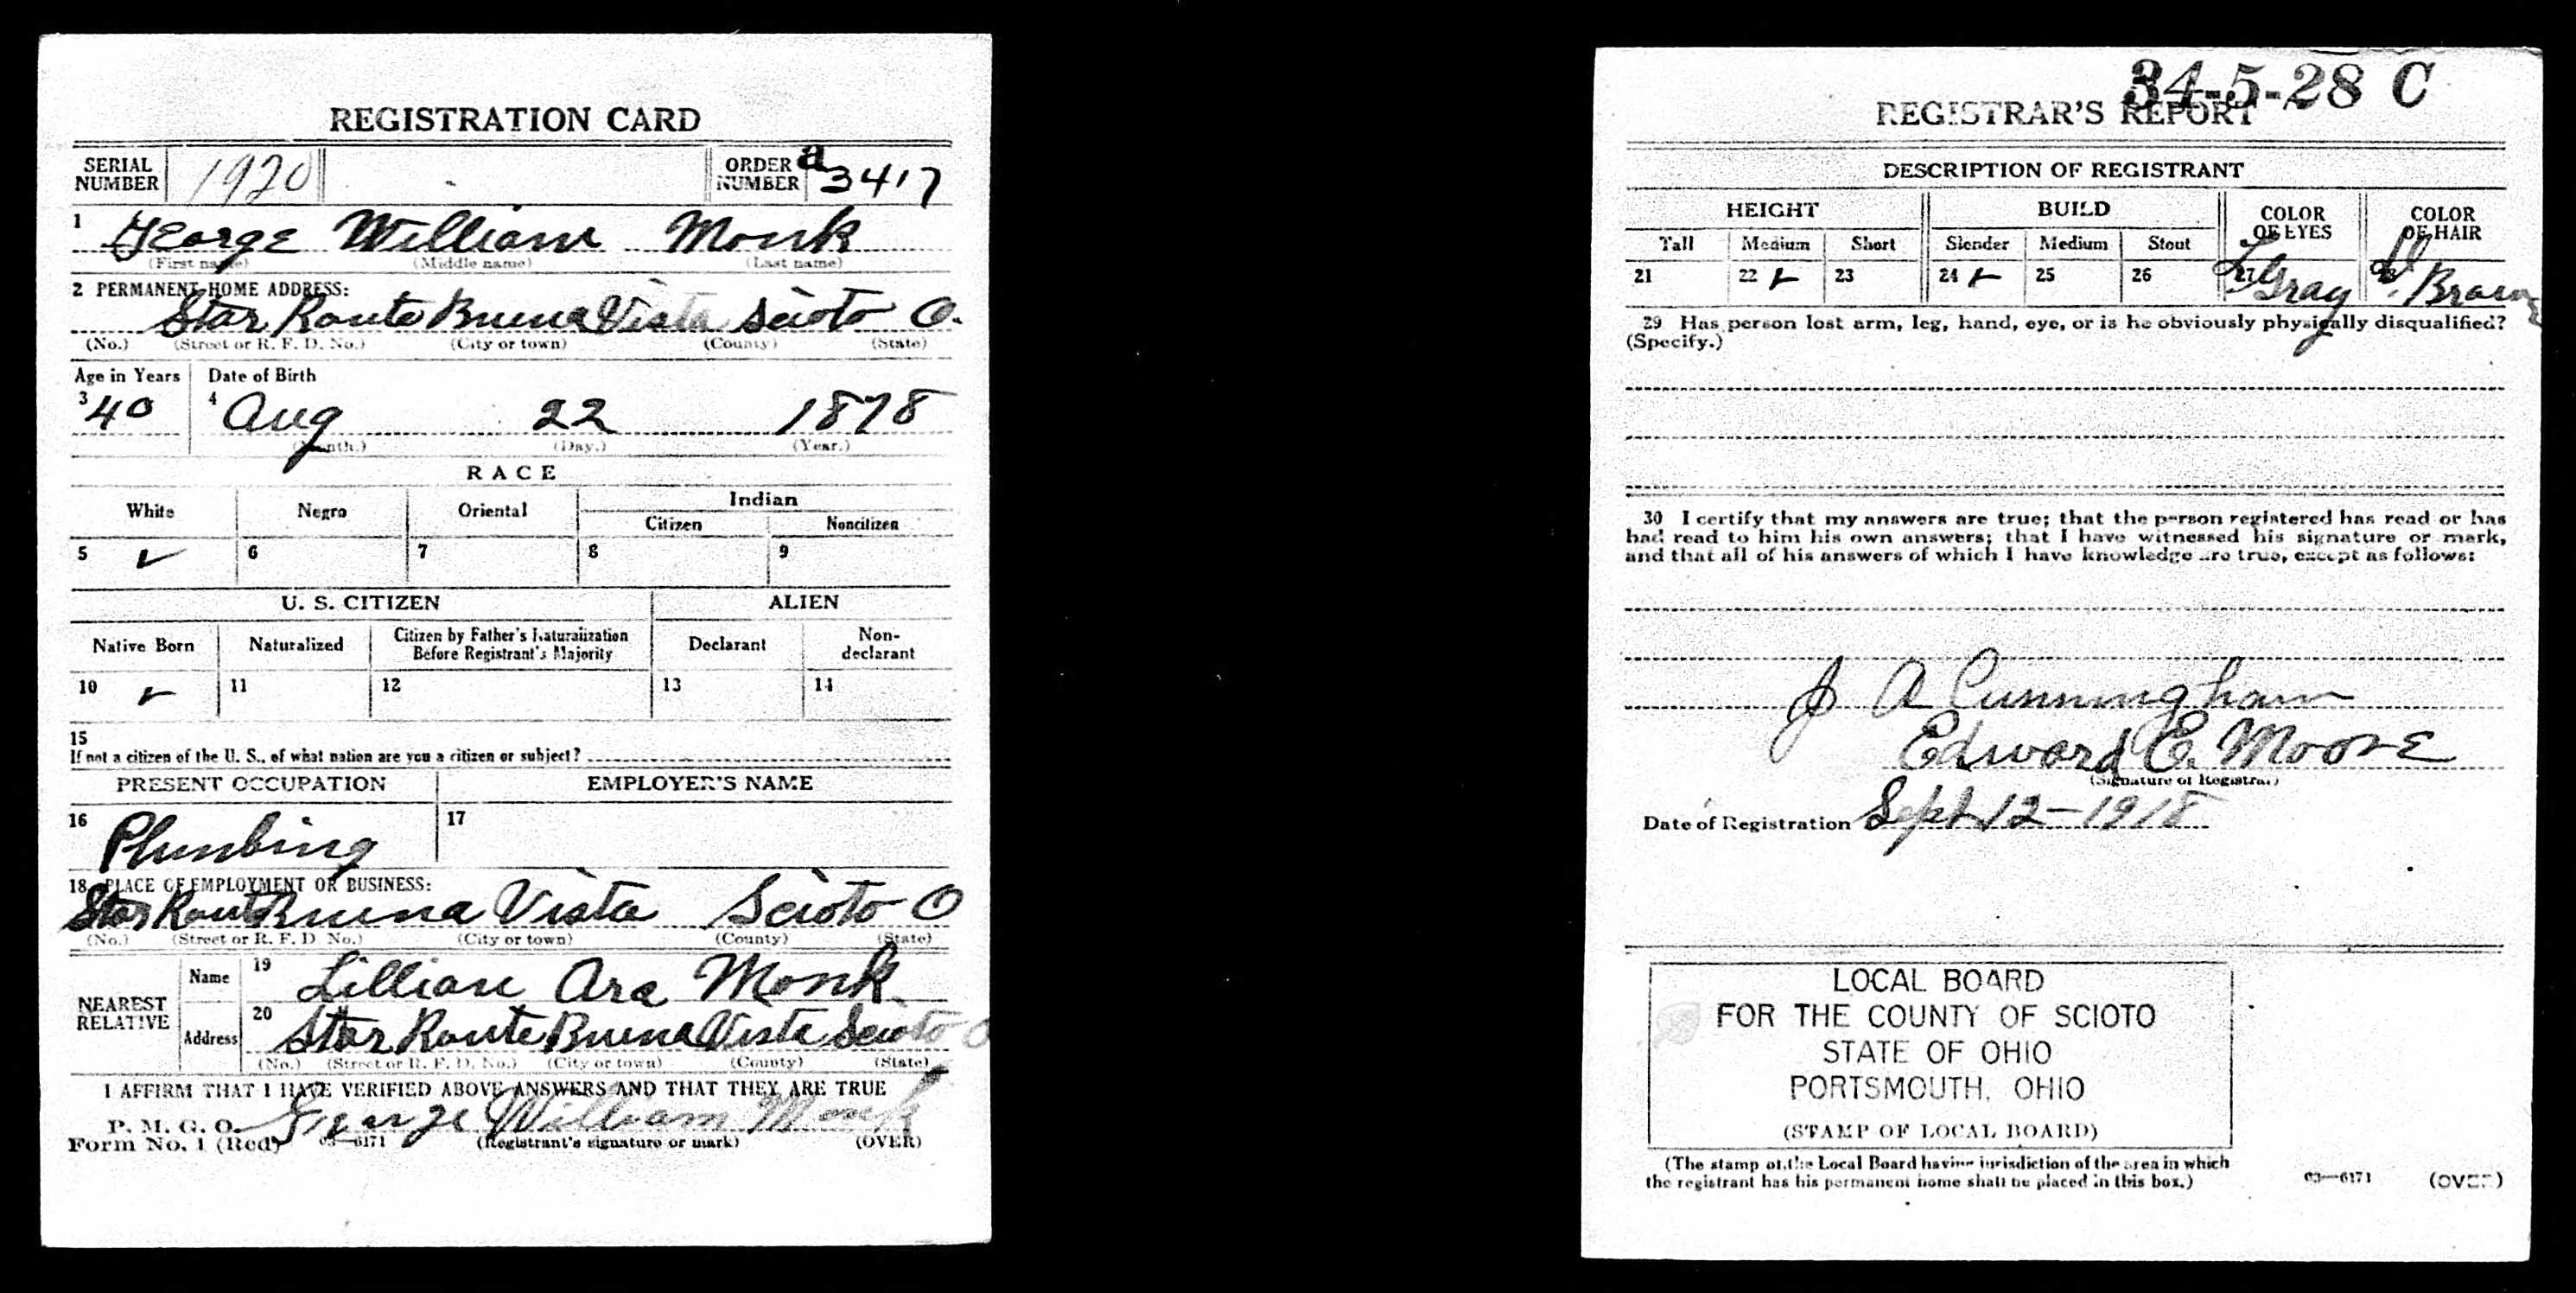 REGISTRATION CARD
SERIAL NUMBER 1920 ORDER NUMBER a 3417
1 George William Monk
(First name) (Middle name) (Last name)
2 PERMANENT HOME ADDRESS:
Star Route Buena Vista Scioto O.
(No.) (Street or R. F. D. No.) (City or town) (County) (State)
Age in Years Date of Birth
3 40 4 Aug 22 1878
(Month.) (Day.) (Year.)
RACE
White Negro Oriental Indian
Citizen Noncitizen
5 ✓ 6 7 8 9
U. S. CITIZEN ALIEN
Native Born Naturalized Citizen by Father's Naturalization Before Registrant's Majority Declarant Non-declarant
10 ✓ 11 12 13 14
15
If not a citizen of the U. S., of what nation are you a citizen or subject?
PRESENT OCCUPATION EMPLOYER'S NAME
16 Plumbing 17
18 PLACE OF EMPLOYMENT OR BUSINESS:
Star Route Buena Vista Scioto O
(No.) (Street or R. F. D. No.) (City or town) (County) (State)
NEAREST RELATIVE
Name 19 Lillian Ara Monk
Address 20 Star Route Buena Vista Scioto O
(No.) (Street or R. F. D. No.) (City or town) (County) (State)
I AFFIRM THAT I HAVE VERIFIED ABOVE ANSWERS AND THAT THEY ARE TRUE
P. M. G. O. George William Monk
Form No. 1 (Red) 03—6171 (Registrant's signature or mark) (OVER)
34-5-28 C
REGISTRAR'S REPORT
DESCRIPTION OF REGISTRANT
HEIGHT BUILD COLOR OF EYES COLOR OF HAIR
Tall Medium Short Slender Medium Stout
21 22 ✓ 23 24 ✓ 25 26 27 Gray 28 Brown
29 Has person lost arm, leg, hand, eye, or is he obviously physically disqualified?
(Specify.)
30 I certify that my answers are true; that the person registered has read or has
had read to him his own answers; that I have witnessed his signature or mark,
and that all of his answers of which I have knowledge are true, except as follows:
J A Cunningham
Edward E. Moore
(Signature of Registrar)
Date of Registration Sept 12-1918
LOCAL BOARD
FOR THE COUNTY OF SCIOTO
STATE OF OHIO
PORTSMOUTH, OHIO
(STAMP OF LOCAL BOARD)
(The stamp of the Local Board having jurisdiction of the area in which
the registrant has his permanent home shall be placed in this box.)
03—6171 (OVER)